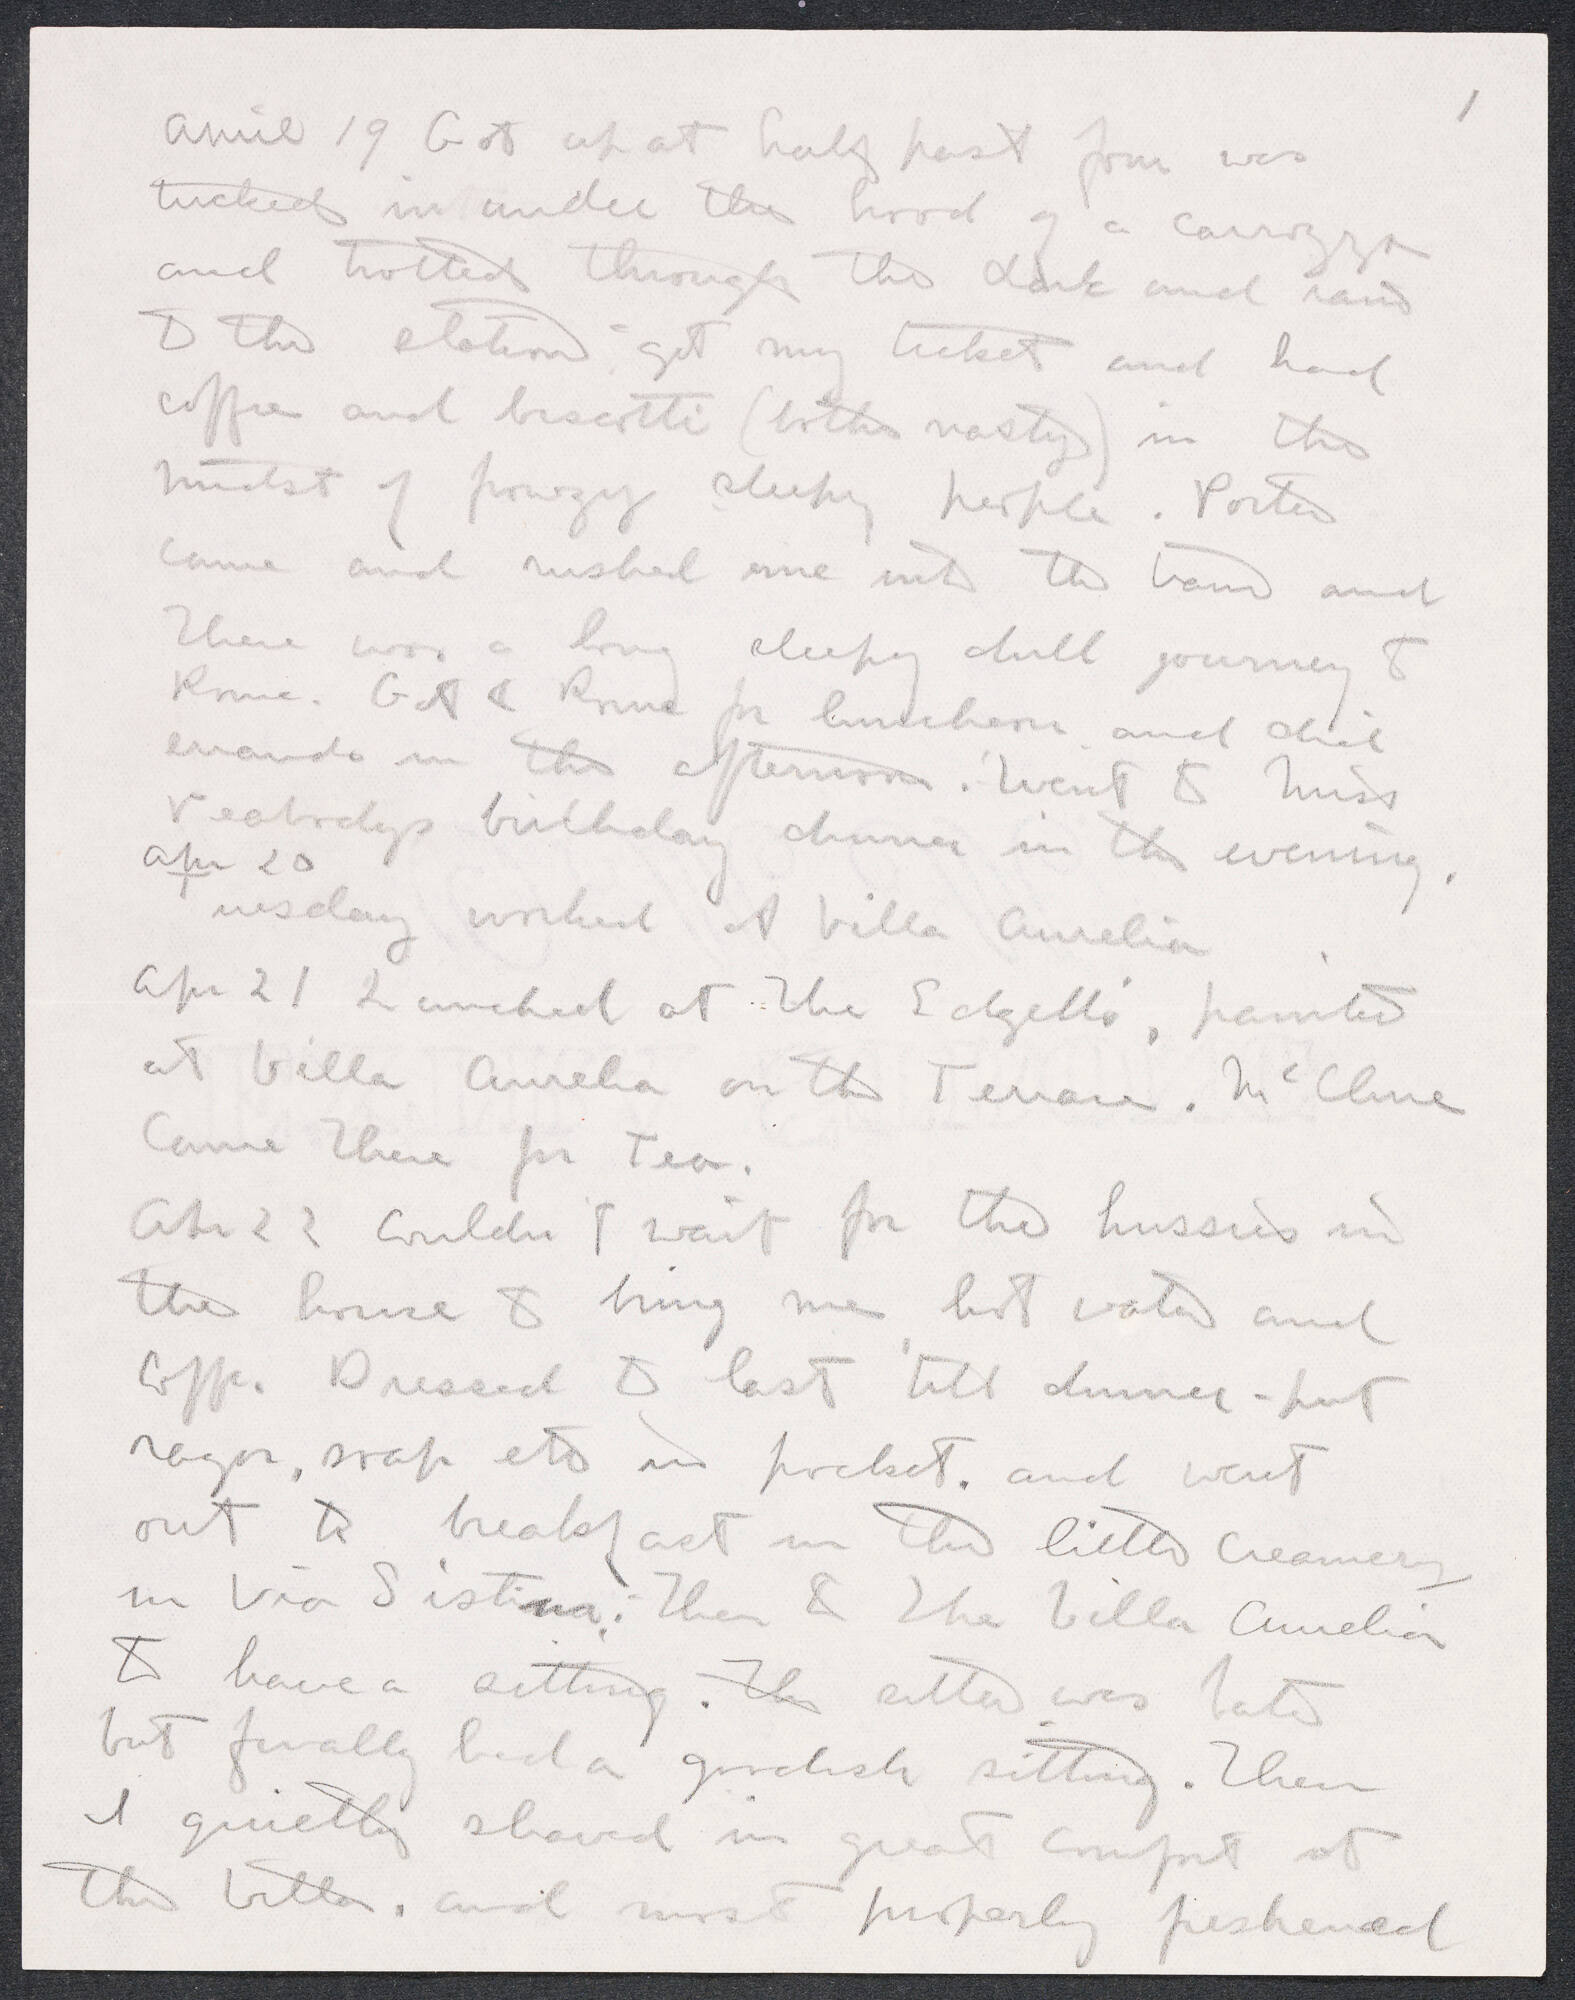 1
April 19 Got up at half past four was
tucked in under the hood of a carrozza
and trotted through the dark and rain
to the station got my ticket and had
coffee and biscotti (both nasty) in the
midst of frowzy sleepy people. Porter
came and rushed me into the train and
there was a long sleepy dull journey to
Rome. Got to Rome for luncheon and did
errands in the afternoon. Went to Miss
Peabodys birthday dinner in the evening.
Apr 20
Tuesday worked at Villa Aurelia
Apr 21 Lunched at the Edgells', painted
at Villa Aurelia on the Terrace. McClure
came there for Tea.
Apr 22 Couldn't wait for the hussies in
the house to bring me hot water and
coffe. Dressed to last 'till dinner - put
razor, soap etc in pocket. and went
out to breakfast in the little creamery
in Via Sistina. Then to the Villa Aurelia
to have a sitting. The sitter was late
but finally had a goodish sitting. Then
I quietly shaved in great comfort at
the Villa. and most properly freshened